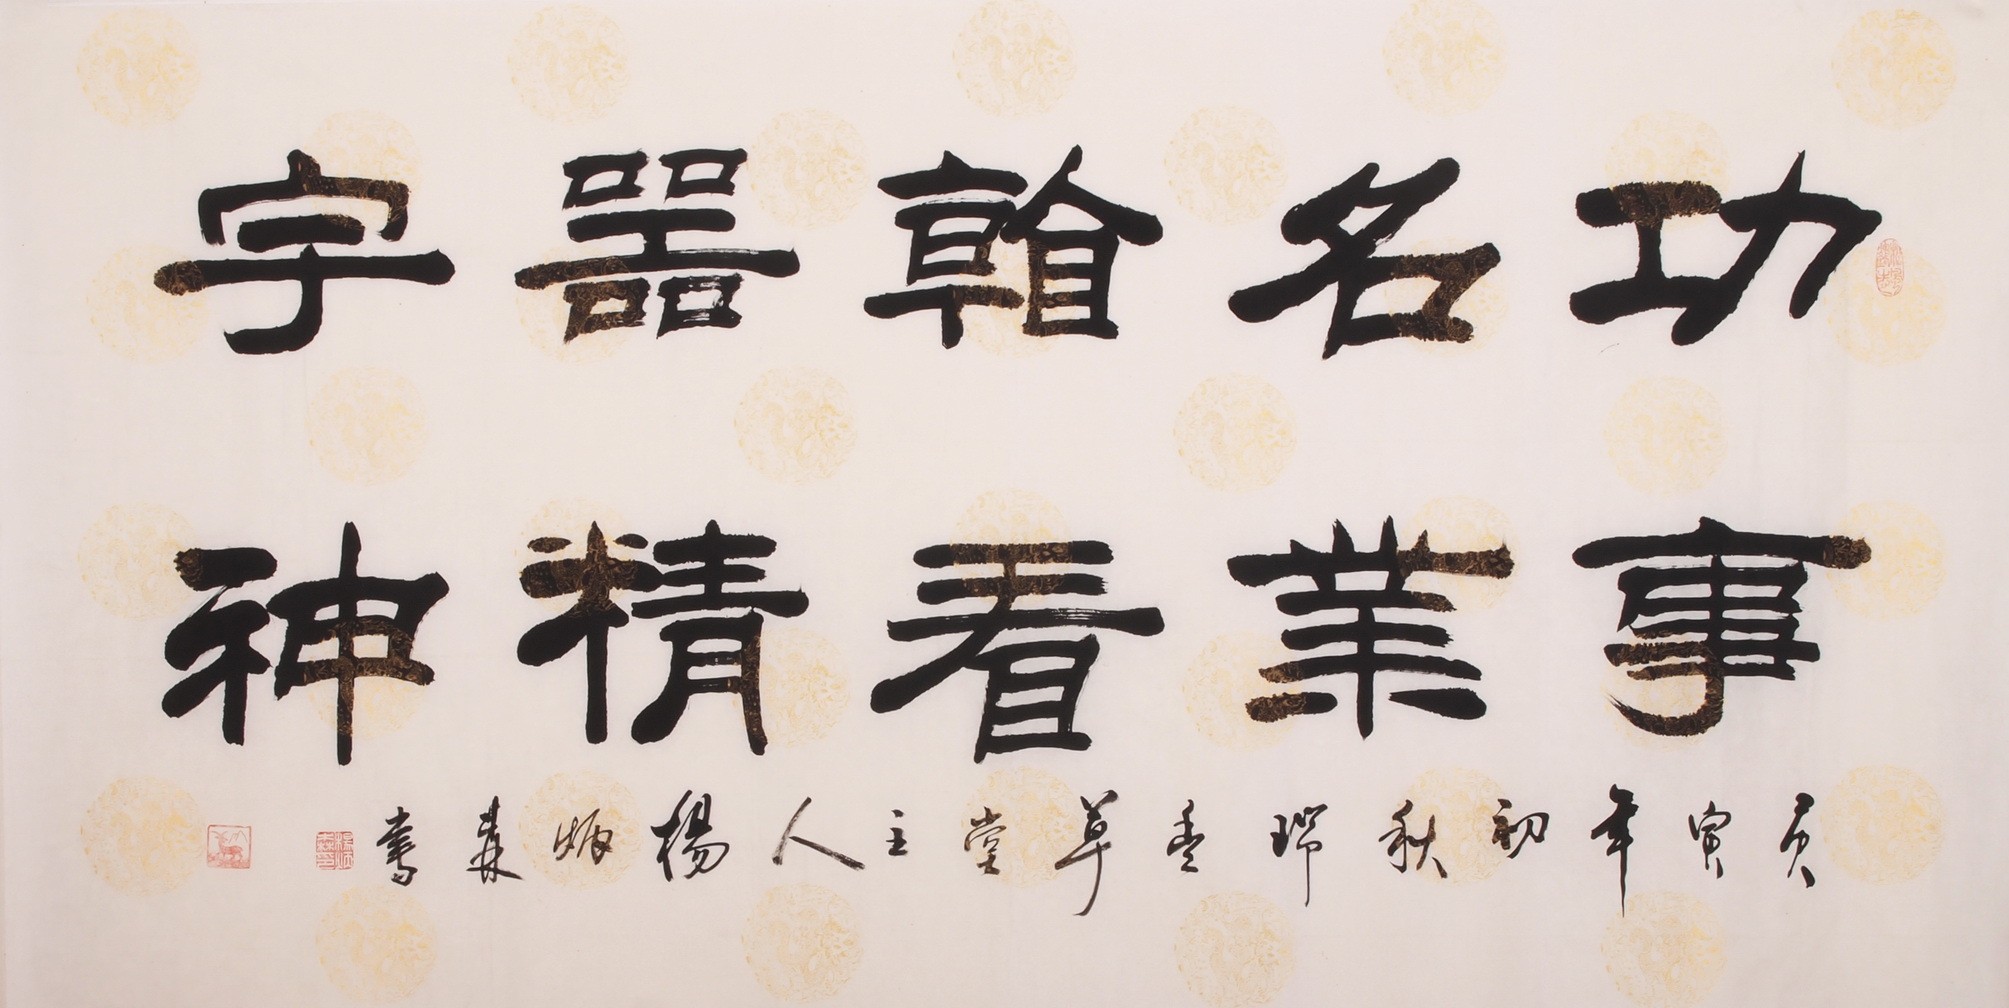 功名看器宇
事業看精神
庚寅年初秋瑞草堂主人楊炳森書
楊炳森印